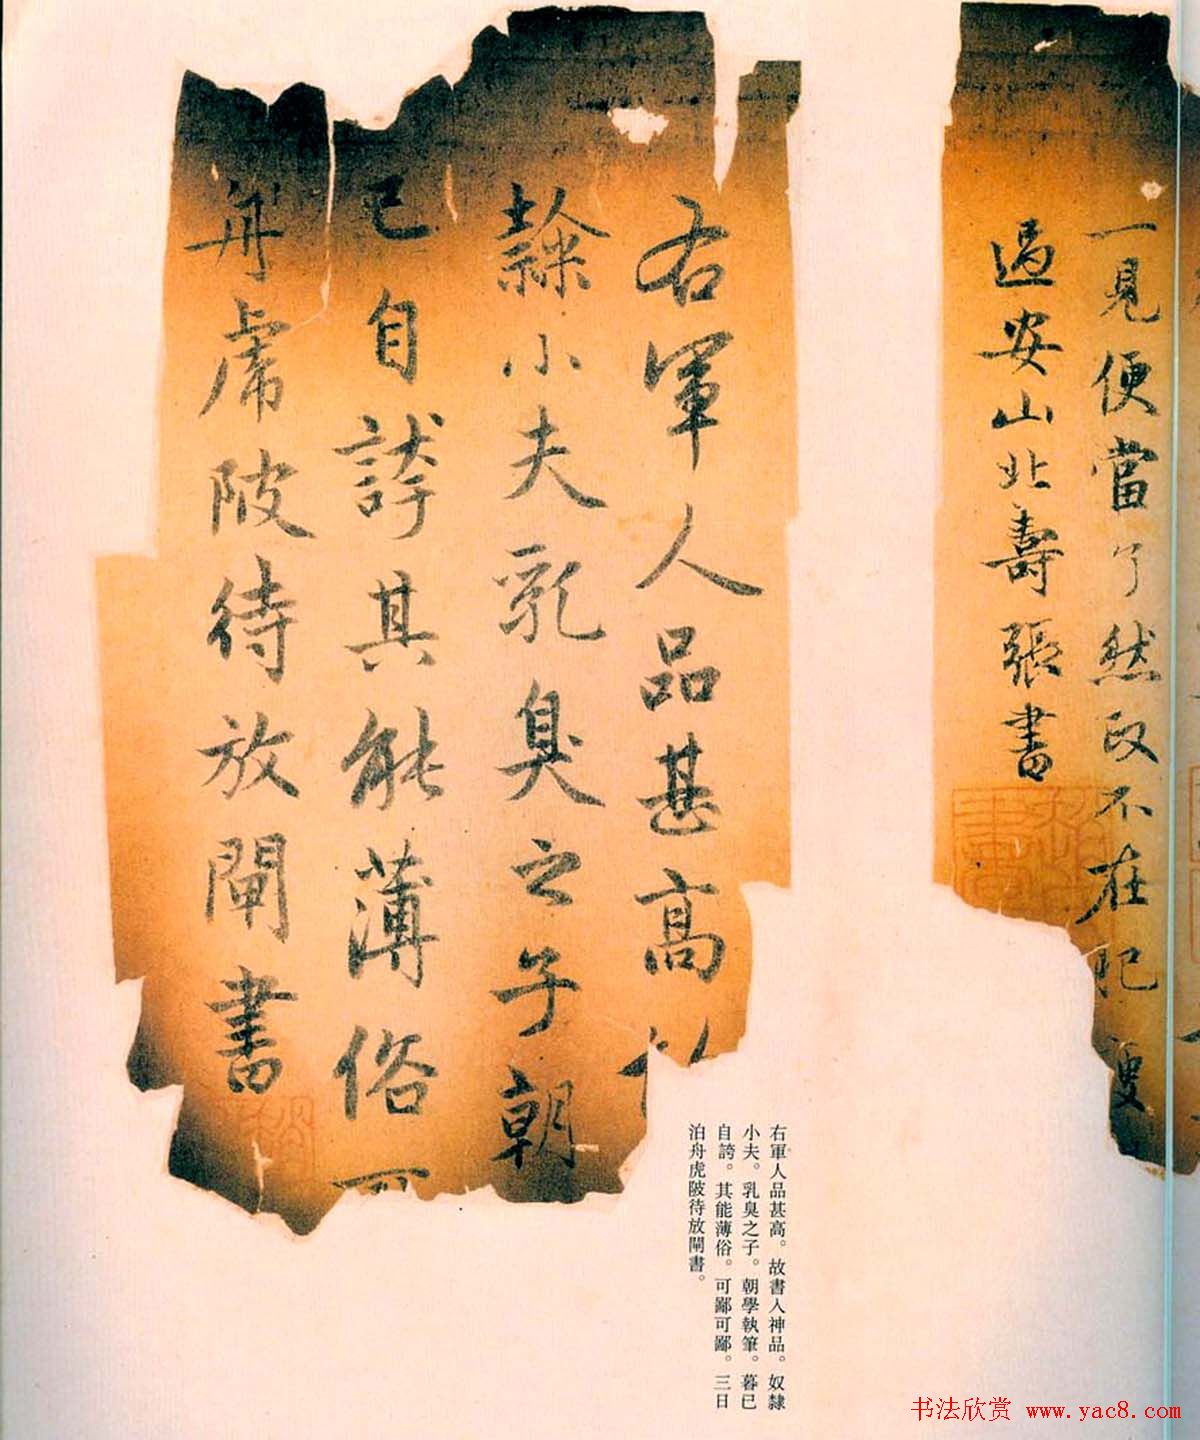 一見便當了然政不在肥瘦
過安山北壽張書
右軍人品甚高
隸小夫乳臭之子朝
已自誇其能薄俗可
舟虎陂待放閘書
右軍人品甚高。故書入神品。奴隸
小夫。乳臭之子。朝學執筆。暮已
自誇。其能薄俗。可鄙可鄙。三日
泊舟虎陂待放閘書。
书法欣赏 www.yac8.com